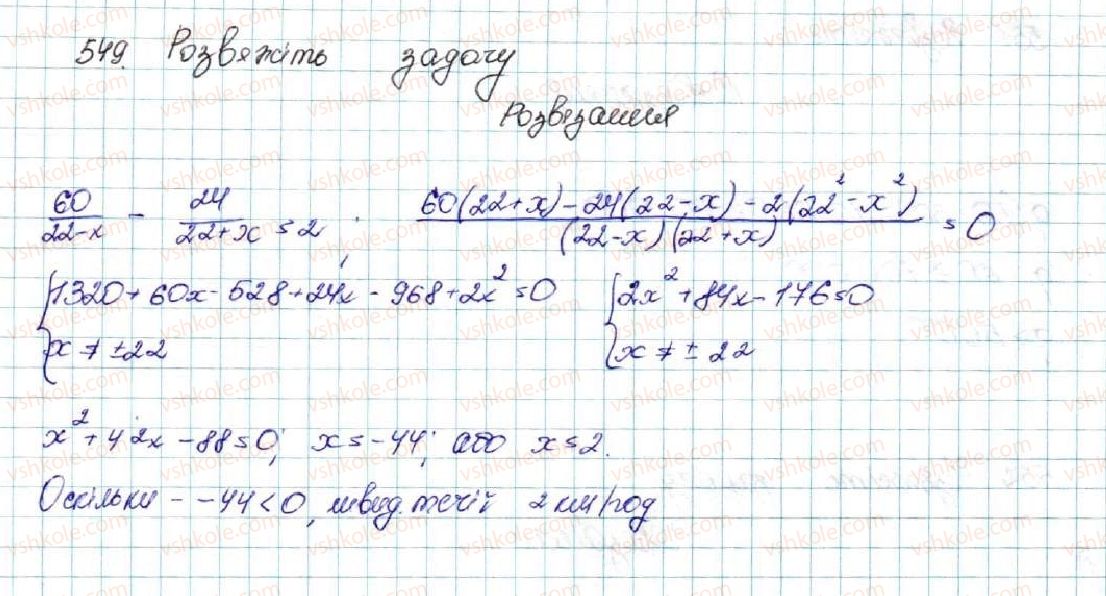 549. Розвяжіть задачу
Розвязання
60/(22-x) - 24/(22+x) = 2; (60(22+x) - 24(22-x) - 2(22² - x²))/((22-x)(22+x)) = 0
{1320 + 60x - 528 + 24x - 968 + 2x² = 0 {2x² + 84x - 176 = 0
x ≠ ±22 x ≠ ± 22
x² + 42x - 88 = 0; x = -44; або x = 2.
Оскільки - -44 < 0, швид. течії 2 км/год